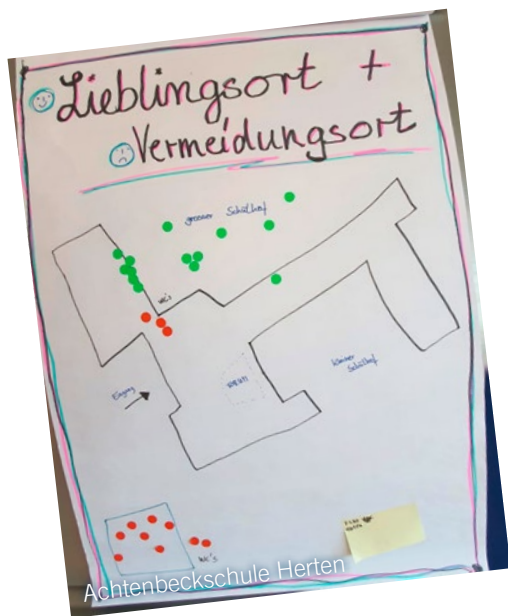 Lieblingsort +
Vermeidungsort
grosser Schulhof
WC's
Eingang
kleiner
Schulhof
WC's
Achtenbeckschule Herten